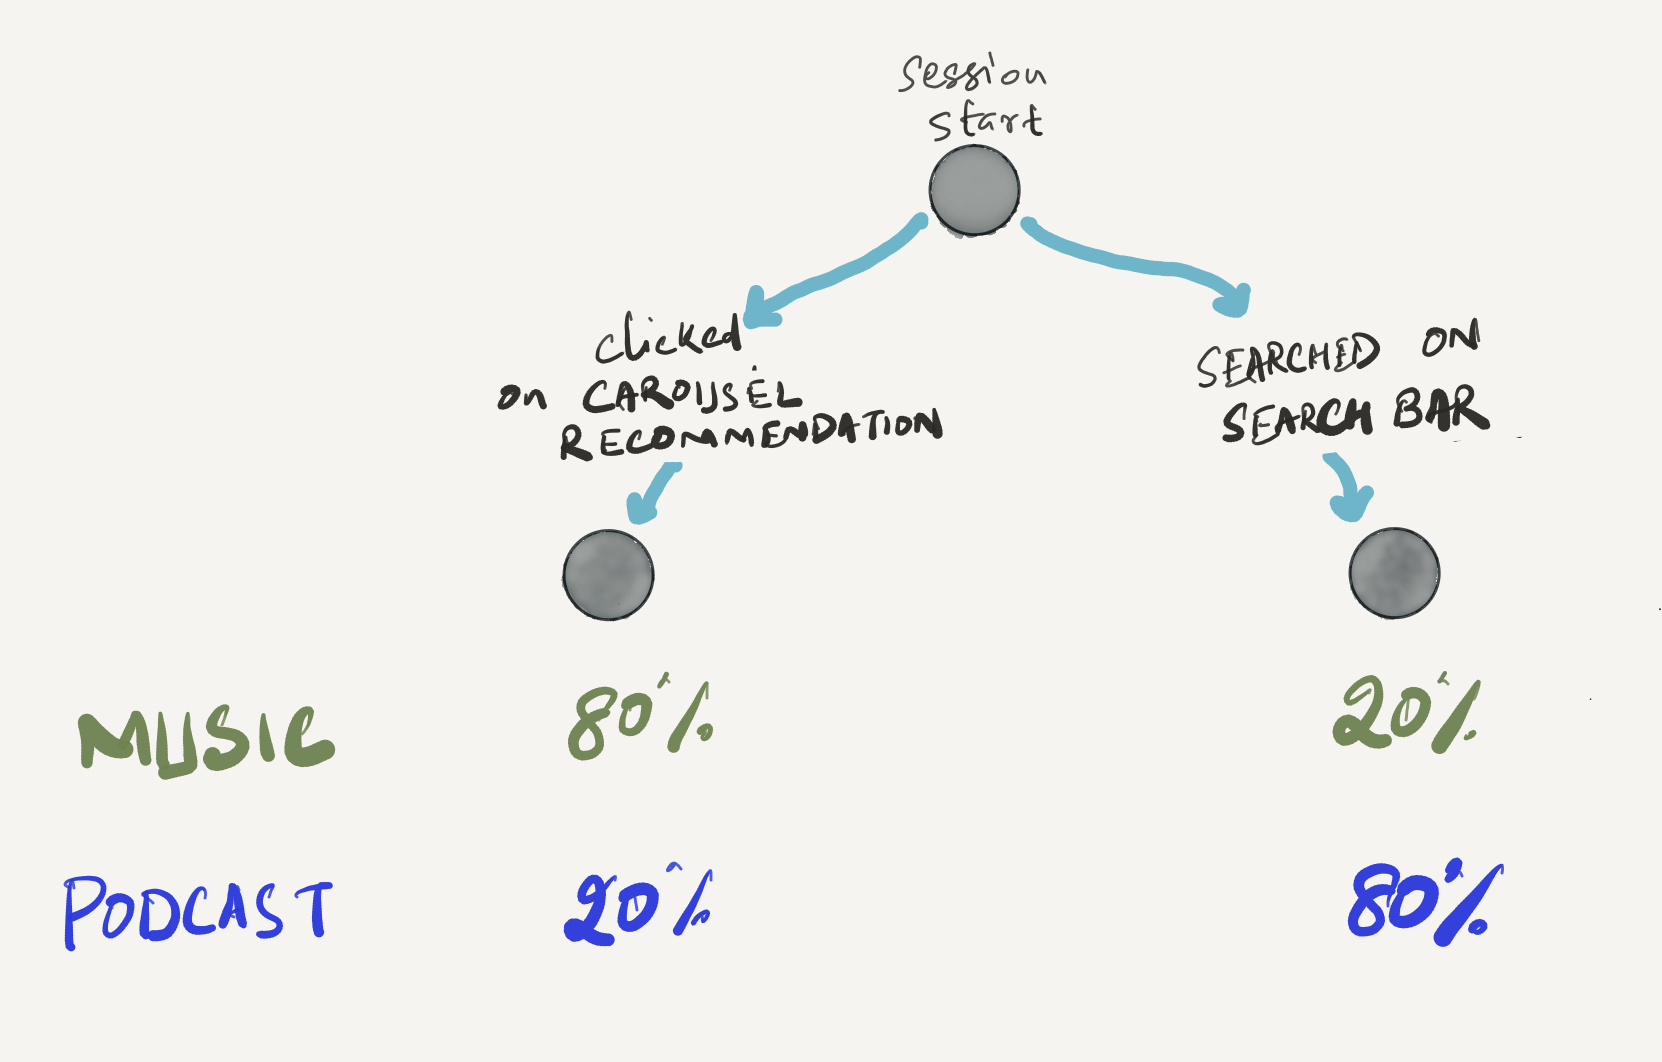 session
start
clicked
on CAROUSEL
RECOMMENDATION
SEARCHED ON
SEARCH BAR
MUSIC 80% 20%
PODCAST 20% 80%